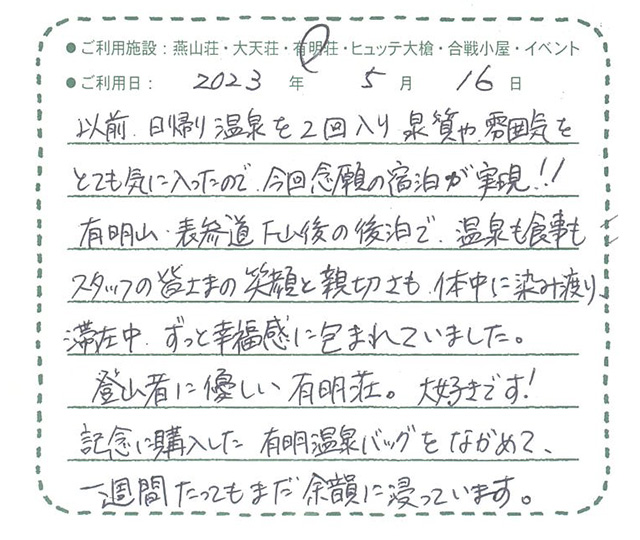 ●ご利用施設：燕山荘・大天荘・有明荘・ヒュッテ大槍・合戦小屋・イベント
●ご利用日： 2023 年 5 月 16 日
以前、日帰り温泉を2回入り泉質や雰囲気を
とても気に入ったので、今回念願の宿泊が実現!!
有明山・表参道下山後の後泊で、温泉も食事も
スタッフの皆さまの笑顔と親切さも、体中に染み渡り、
滞在中、ずっと幸福感に包まれていました。
登山者に優しい有明荘。大好きです!
記念に購入した有明温泉バッグをながめて、
一週間たってもまだ余韻に浸っています。